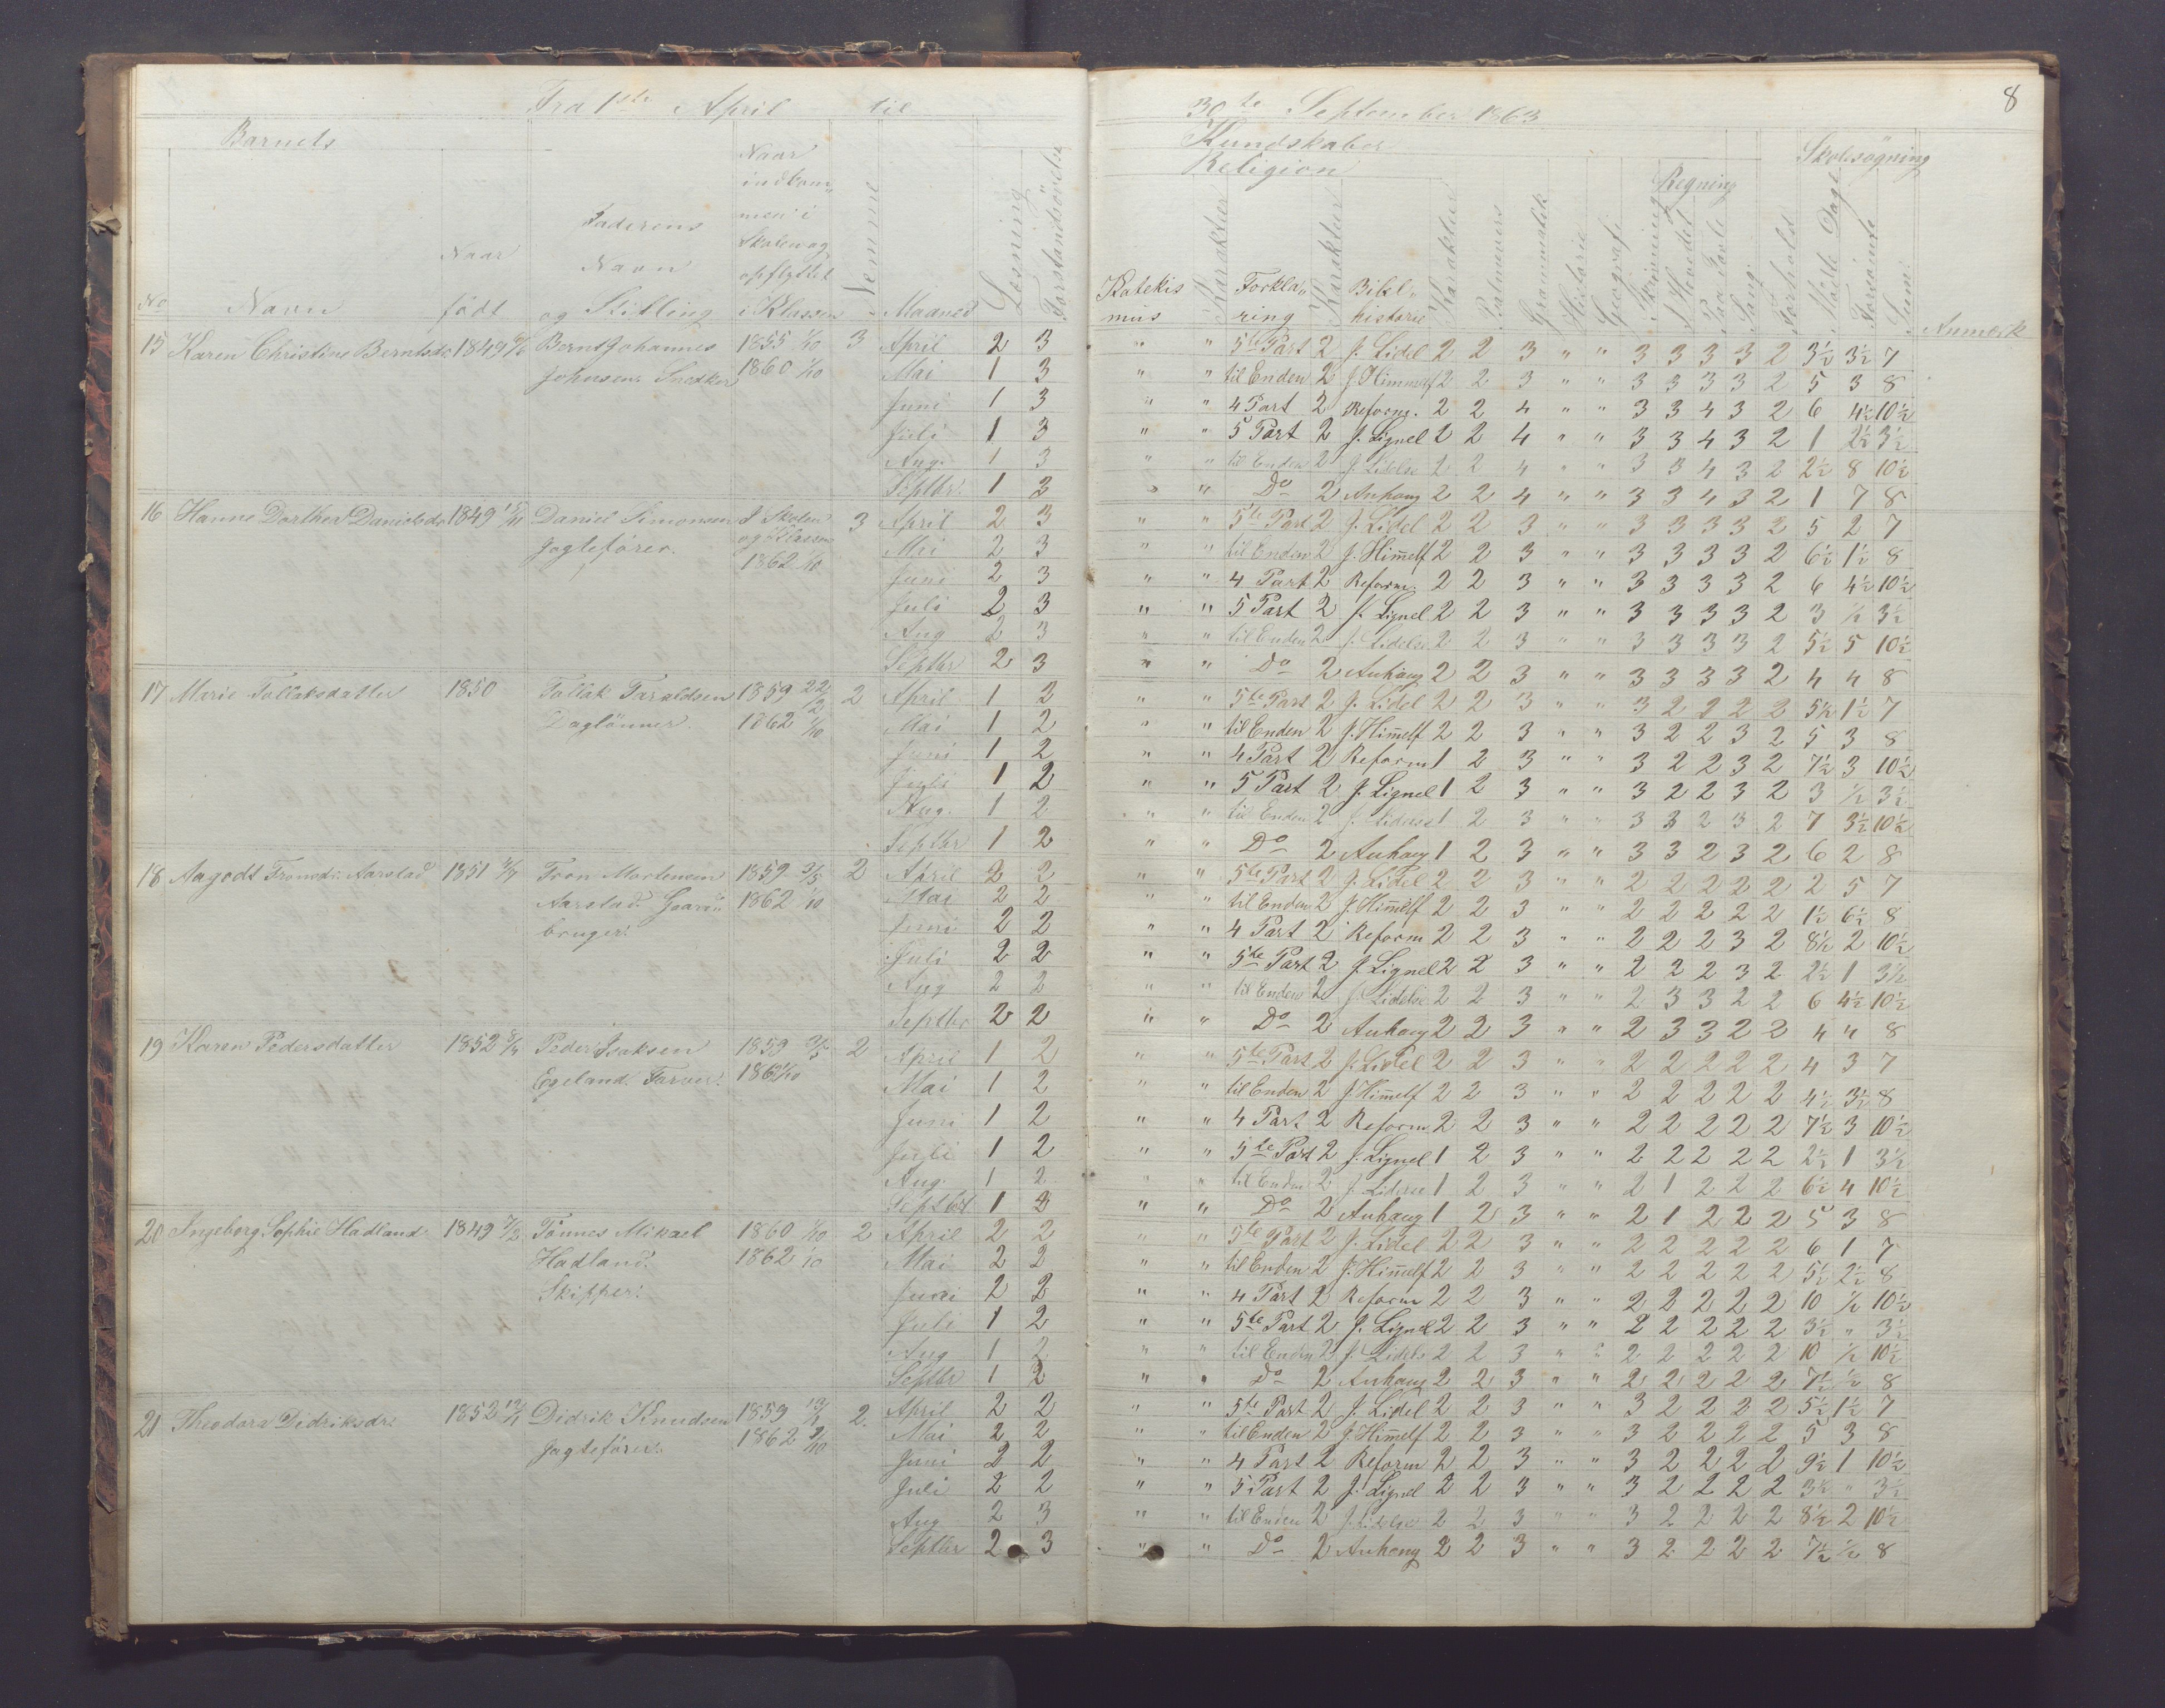 Fra 1ste April til 30te September 1863
8
Barnets
Kundskaber
Skolesøgning
Religion
Regning
No Navn
Naar født
Faderens Navn og Stilling
Naar indkommen i Skolen og opflyttet i Klassen
Nemme
Maaned
Læsning
Forstandsøvelse
Katekismus
Karakter
Forklaring
Karakter
Bibelhistorie
Karakter
Salmevers
Grammatik
Historie
Geografi
Skrivning
I Hovedet
Paa Tavle
Sang
Forhold
Mødte Dage
Forsømte
Sum
Anmærk
15 Karen Christine Berntsdr 1849 Bernt Johannes Johnsen. Snedker 1855 1/10 1860 1/10 3
April 2 3 " " 5te Part 2 J. Lidel 2 2 3 " " 3 3 3 3 2 3½ 3½ 7
Mai 1 3 " " til Enden 2 J. Himmelf 2 2 3 " " 3 3 3 3 2 5 3 8
Juni 1 3 " " 4 Part 2 Reform. 2 2 4 " " 3 3 4 3 2 6 4½ 10½
Juli 1 3 " " 5 Part 2 J. Lignel 2 2 4 " " 3 3 4 3 2 1 2½ 3½
Aug. 1 3 " " til Enden 2 J. Lidelse 2 2 4 " " 3 3 4 3 2 2½ 8 10½
Septbr. 1 3 " " Do 2 Anhang 2 2 4 " " 3 3 4 3 2 1 7 8
16 Hanne Dorthea Danielsdr 1849 Daniel Simonsen Jagtefører. I Skolen og Klassen 1862 1/10 3
April 2 3 " " 5te Part 2 J. Lidel 2 2 3 " " 3 3 3 3 2 5 2 7
Mai 2 3 " " til Enden 2 J. Himelf 2 2 3 " " 3 3 3 3 2 6½ 1½ 8
Juni 2 3 " " 4 Part 2 Reform. 2 2 3 " " 3 3 3 3 2 6 4½ 10½
Juli 2 3 " " 5 Part 2 J. Lignel 2 2 3 " " 3 3 3 3 2 3 ½ 3½
Aug 2 3 " " til Enden 2 J. Lidelse 2 2 3 " " 3 3 3 3 2 5½ 5 10½
Septbr 2 3 " " Do 2 Anhang 2 2 3 " " 3 3 3 3 2 4 4 8
17 Marie Tollaksdatter 1850 Tollak Taraldsen Daglønner 1859 22/2 1862 1/10 2
April 1 2 " " 5te Part 2 J. Lidel 2 2 3 " " 3 2 2 2 2 5½ 1½ 7
Mai 1 2 " " til Enden 2 J. Himelf 2 2 3 " " 3 2 2 3 2 5 3 8
Juni 1 2 " " 4 Part 2 Reform 1 2 3 " " 3 2 2 3 2 7½ 3 10½
Juli 1 2 " " 5 Part 2 J. Lignel 1 2 3 " " 3 2 2 3 2 3 ½ 3½
Aug. 1 2 " " til Enden 2 J. Lidelse 1 2 3 " " 3 3 2 3 2 7 3½ 10½
Septbr 1 2 " " Do 2 Anhang 1 2 3 " " 3 3 2 3 2 6 2 8
18 Aagodt Tronsdr. Aarstad 1851 Tron Mortensen Aarstad. Gaardbruger. 1859 3/5 1862 1/10 2
April 2 2 " " 5te Part 2 J. Lidel 2 2 3 " " 2 2 2 2 2 2 5 7
Mai 2 2 " " til Enden 2 J. Himelf 2 2 3 " " 2 2 2 2 2 1½ 6½ 8
Juni 2 2 " " 4 Part 2 Reform 2 2 3 " " 2 2 2 3 2 8½ 2 10½
Juli 2 2 " " 5te Part 2 J. Lignel 2 2 3 " " 2 2 2 3 2 2½ 1 3½
Aug 2 2 " " til Enden 2 J. Lidelse 2 2 3 " " 2 3 3 2 2 6 4½ 10½
Septbr 2 2 " " Do 2 Anhang 2 2 3 " " 2 3 3 2 2 4 4 8
19 Karen Pedersdatter 1852 Peder Isaksen Egeland. Farver. 1859 1862 1/10 2
April 1 2 " " 5te Part 2 J. Lidel 2 2 3 " " 2 2 2 2 2 4 3 7
Mai 1 2 " " til Enden 2 J. Himelf 2 2 3 " " 2 2 2 2 2 4½ 3½ 8
Juni 1 2 " " 4 Part 2 Reform 2 2 3 " " 2 2 2 2 2 7½ 3 10½
Juli 1 2 " " 5te Part 2 J. Lignel 1 2 3 " " 2 2 2 2 2 2½ 1 3½
Aug. 1 2 " " til Enden 2 J. Lidelse 1 2 3 " " 2 1 2 2 2 6½ 4 10½
Septbr 1 2 " " Do 2 Anhang 1 2 3 " " 2 1 2 2 2 5 3 8
20 Ingeborg Sophie Hadland 1849 Tønnes Mikael Hadland. Skipper. 1860 1/10 1862 1/10 2
April 2 2 " " 5te Part 2 J. Lidel 2 2 3 " " 2 2 2 2 2 6 1 7
Mai 2 2 " " til Enden 2 J. Himelf 2 2 3 " " 2 2 2 2 2 5½ 2½ 8
Juni 2 2 " " 4 Part 2 Reform 2 2 3 " " 2 2 2 2 2 10 ½ 10½
Juli 1 2 " " 5te Part 2 J. Lignel 2 2 3 " " 2 2 2 2 2 3½ " 3½
Aug 1 2 " " til Enden 2 J. Lidels 2 2 3 " " 2 2 2 2 2 10 ½ 10½
Septbr 1 2 " " Do 2 Anhang 2 2 3 " " 2 2 2 2 2 7½ ½ 8
21 Theodora Didriksdr. 1852 Didrik Knudsen Jagtefører. 1859 1862 1/10 2.
April 2 2 " " 5te Part 2 J. Lidel 2 2 3 " " 3 2 2 2 2 5½ 1½ 7
Mai 2 2 " " til Enden 2 J. Himelf 2 2 3 " " 3 2 2 2 2 5 3 8
Juni 2 2 " " 4 Part 2 Reform 2 2 3 " " 3 2 2 2 2 9½ 1 10½
Juli 2 2 " " 5 Part 2 J. Lignel 2 2 3 " " 3 2 2 2 2 3½ " 3½
Aug 2 3 " " til Enden 2 J. Lidelse 2 2 3 " " 3 2 2 2 2 8½ 2 10½
Septbr 2 3 " " Do 2 Anhang 2 2 3 " " 3 2 2 2 2 7½ ½ 8